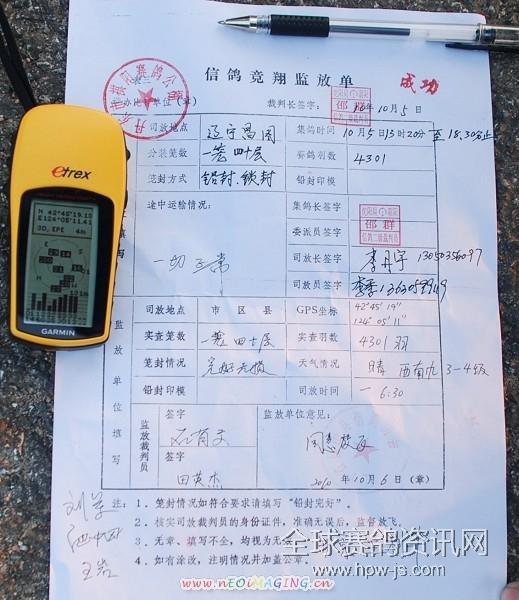 信鸽竞翔监放单
成功
主办地 单位(章)
裁判长签字:
10年10月5日
司放地点 辽宁昌图 集鸽时间 10月5日13时20分 至18.30分止
分装笼数 一笼四十层 赛鸽羽数 4301
笼封方式 铅封.锁封 铅封印模
途中运输情况: 集鸽长签字
邵群
信鸽二级裁判员
委派员签字
一切正常 司放长签字 李丹宇 13050356097
司放员签字
填写
司放地点 市区县 GPS坐标 42°45′19″
124°05′11″
实查笼数 一笼四十层 实查羽数 4301羽
笼封情况 完好无损 天气情况 晴 西南九 3-4级
铅封印模 司放时间 6:30
监放单位填写
监放裁判员
签字 监放单位意见:
同意放飞
签字
田英杰 2010年10月6日(章)
注:1.笼封情况如符合要求请填写"铅封完好"。
2.核实司放裁判员的身份证件,准确无误后,监督放飞。
3.无章、填写不全,均视为无
4.如有涂改,注明情况并加盖公章。
王岩
eTrex
N 42°45'19.10
E124°05'11.41
3D, EPE 4m
GARMIN
全球赛鸽资讯网
www.hpw-js.com
www.nEOiMAGING.cn